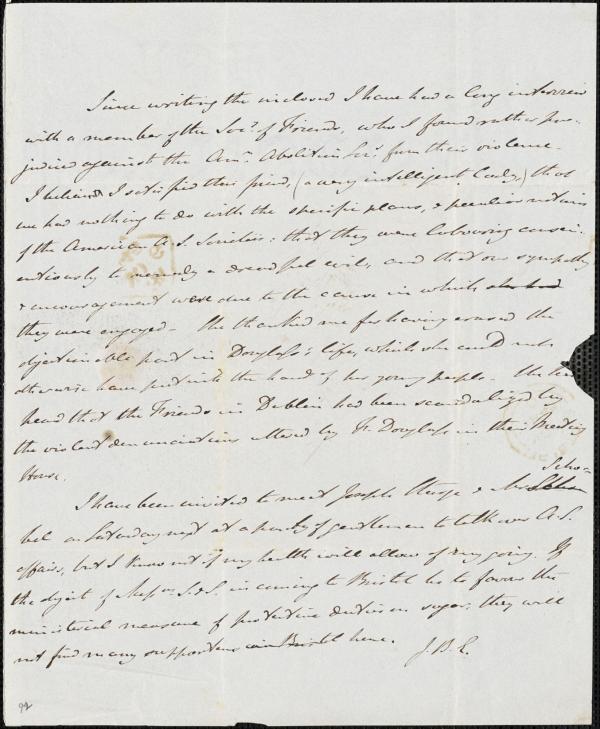 Since writing the inclosed I have had a long interview
with a member of the Soc.y of Friends, who I found rather pre-
judice against the Am.n Abolition Soc.s from their violence.
I believe I satisfied this friend, (a very intelligent Lady,) that
we had nothing to do with the specific plans, & peculiar notions
of the American A. S. Societies: that they were labouring consci-
entiously to remedy a dreadful evil, and that our sympathy
& encouragement were due to the cause in which
they were engaged. She thanked me for having erased the
objectionable part in Douglass's life, which she could not
otherwise have put into the hands of her young people. She had
heard that the Friends in Dublin had been scandalized by
the violent denunciations uttered by F. Douglass in their Meeting
House.
I have been invited to meet Joseph Sturge & Mr Scho-
bel on Saturday next at a party of gentlemen to talk over A. S.
affairs, but I know not if my health will allow of my going. If
the object of Mess.rs S. & S. in coming to Bristol be to favour the
ministerial measure of protective duties on sugar, they will
not find many supporters here.
J. B. E.
92